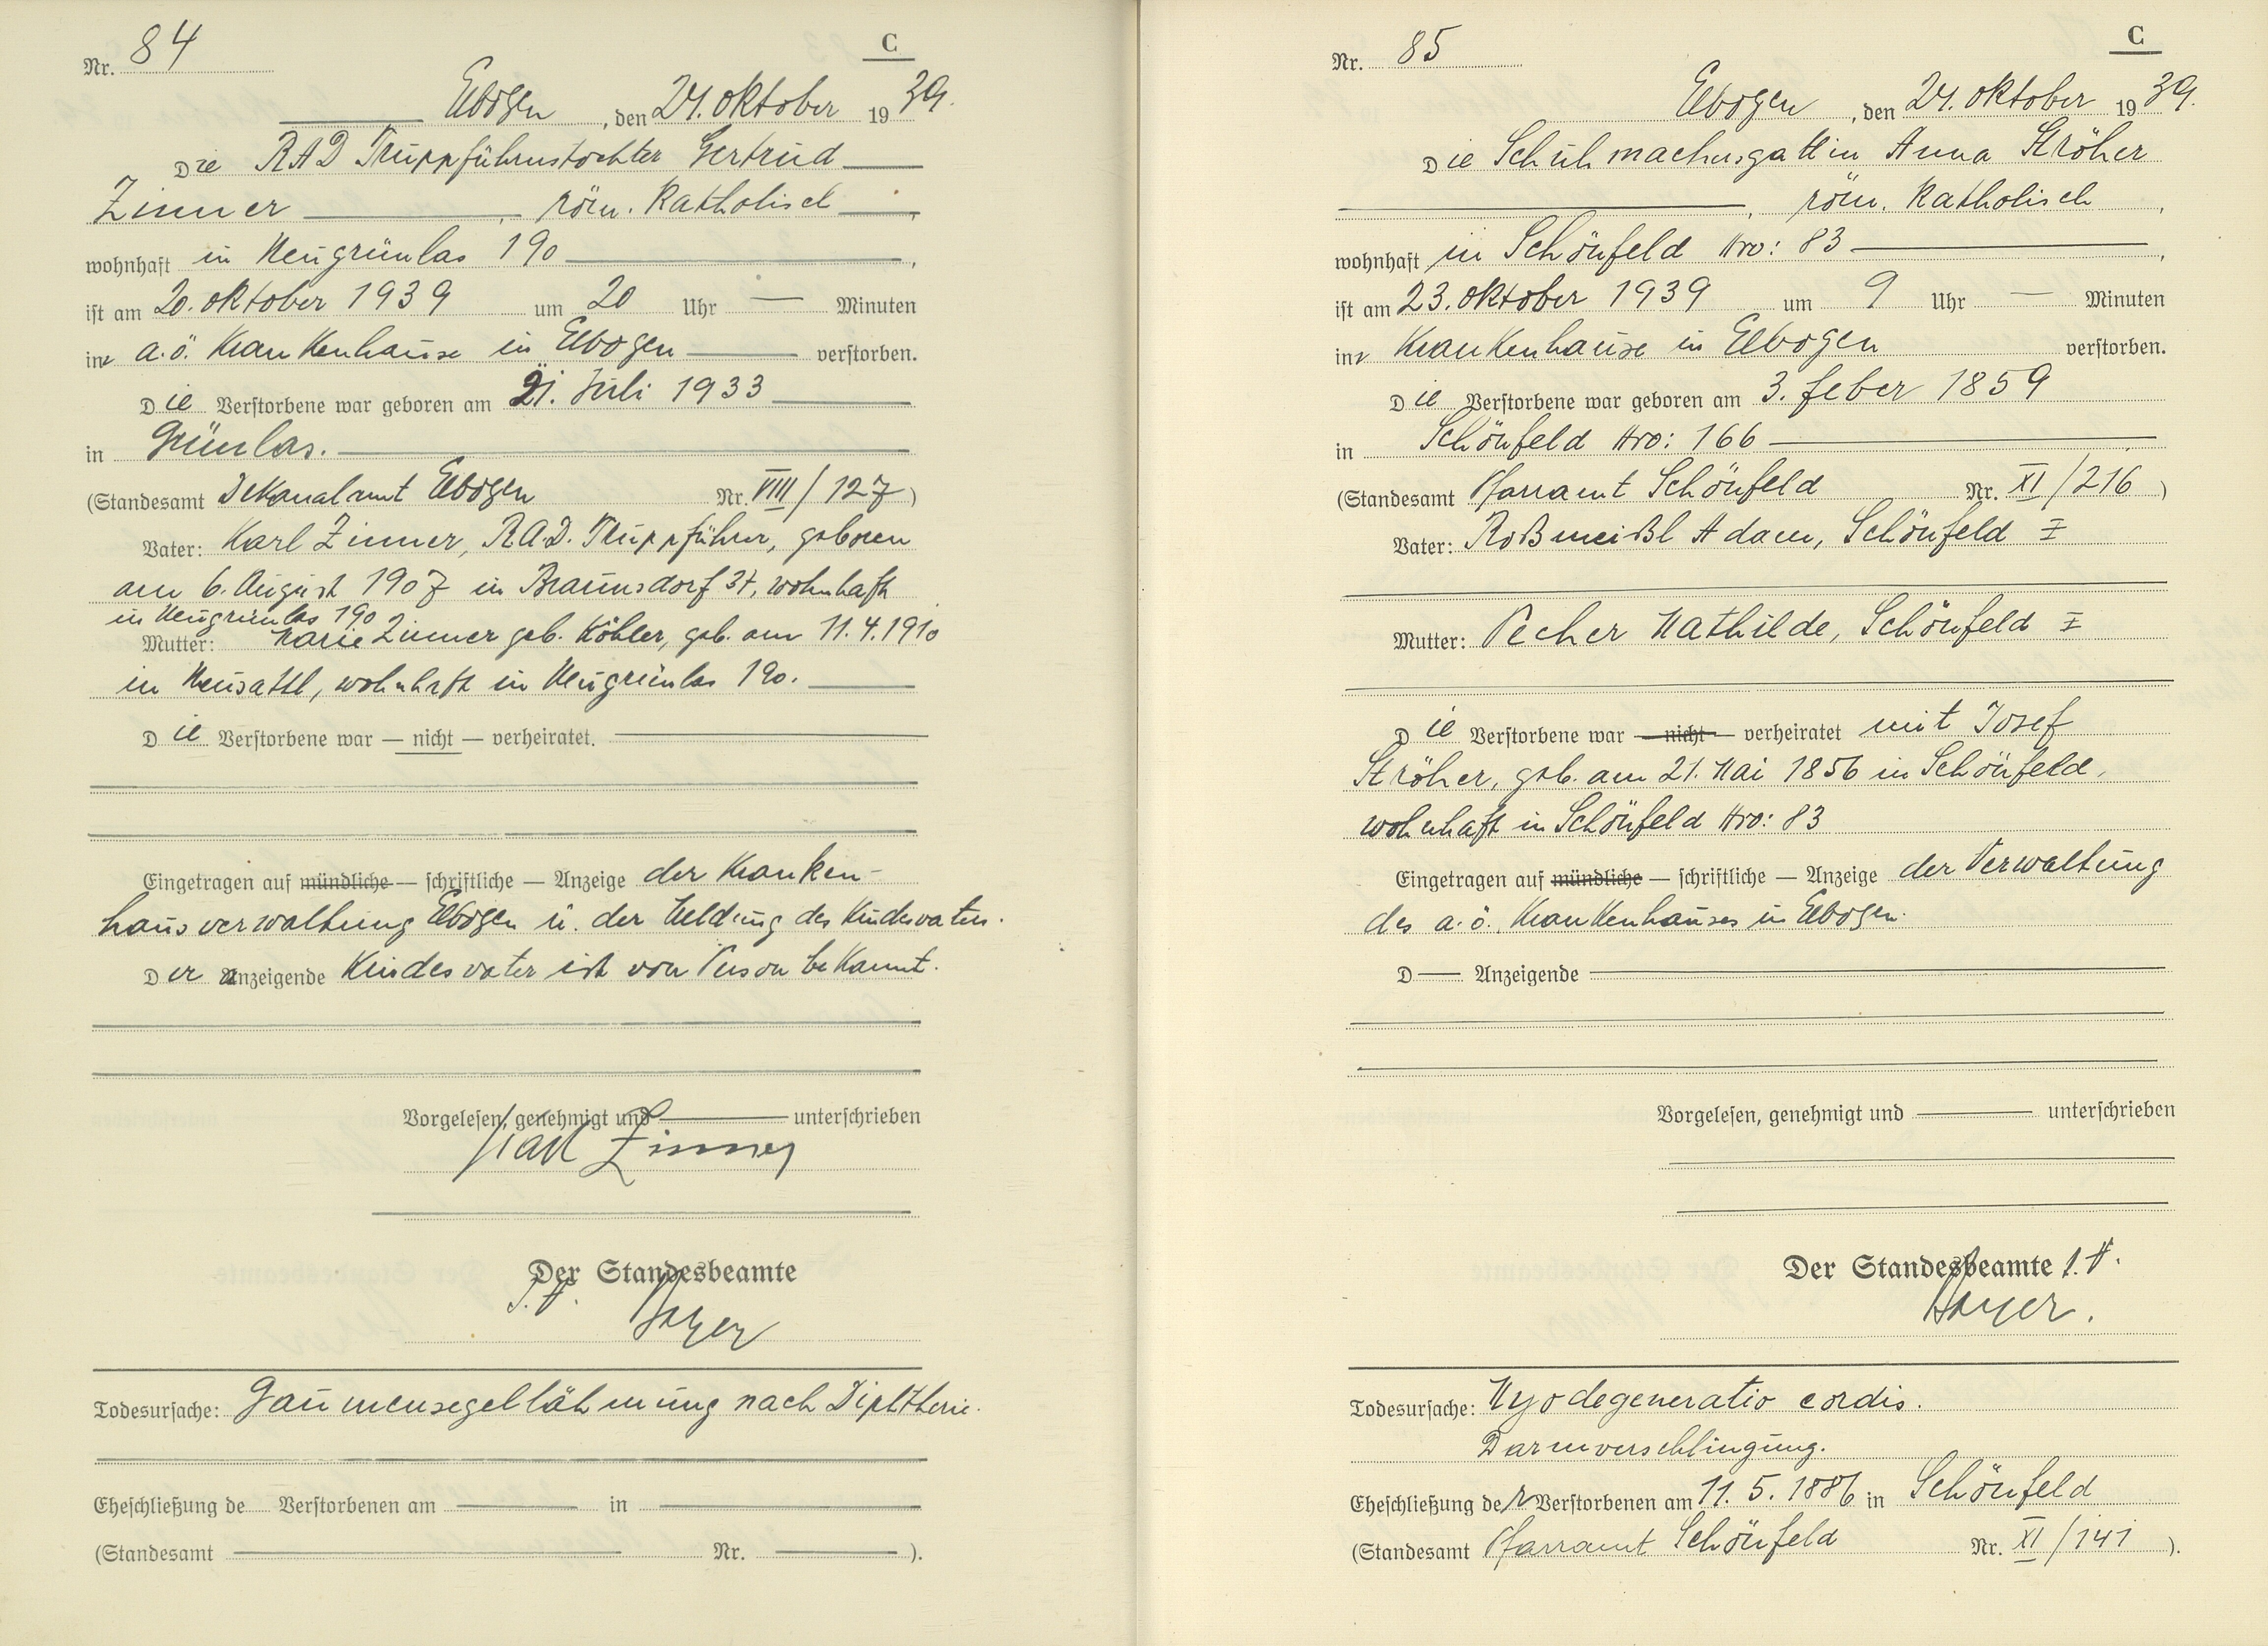 Nr. 84
C
Elbogen, den 24. Oktober 1939.
Die RAD Truppführerstochter Gertrud
Zinner, röm. Katholisch,
wohnhaft in Neugrünlas 190,
ist am 20. Oktober 1939 um 20 Uhr — Minuten
im a.ö. Krankenhause in Elbogen verstorben.
Die Verstorbene war geboren am 21. Juli 1933
in Grünlas.
(Standesamt Dekanalamt Elbogen Nr. VIII/127)
Vater: Karl Zinner, RAD. Truppführer, geboren
am 6. August 1907 in Braunsdorf 37, wohnhaft
in Neugrünlas 190
Mutter: Marie Zinner geb. Köhler, geb. am 11.4.1910
in Neusattl, wohnhaft in Neugrünlas 190.
Die Verstorbene war — nicht — verheiratet.
Eingetragen auf mündliche — schriftliche — Anzeige der Kranken-
hausverwaltung Elbogen u. der Meldung des Kindesvaters.
Der Anzeigende Kindesvater ist von Person bekannt.
Vorgelesen, genehmigt und unterschrieben
Karl Zinner
Der Standesbeamte
I.V. Hoyer
Todesursache: Gaumensegellähmung nach Diphtherie.
Eheschließung de Verstorbenen am — in —
(Standesamt — Nr. — ).
Nr. 85
C
Elbogen, den 24. Oktober 1939.
Die Schuhmachersgattin Anna Ströher
, röm. Katholisch,
wohnhaft in Schönfeld Nro: 83,
ist am 23. Oktober 1939 um 9 Uhr — Minuten
im Krankenhause in Elbogen verstorben.
Die Verstorbene war geboren am 3. Feber 1859
in Schönfeld Nro: 166
(Standesamt Pfarramt Schönfeld Nr. XI/216)
Vater: Roßmeißl Adam, Schönfeld I
Mutter: Pecher Mathilde, Schönfeld I
Die Verstorbene war — nicht — verheiratet mit Josef
Ströher, geb. am 21. Mai 1856 in Schönfeld,
wohnhaft in Schönfeld Nro: 83
Eingetragen auf mündliche — schriftliche — Anzeige der Verwaltung
des a.ö. Krankenhauses in Elbogen.
D — Anzeigende
Vorgelesen, genehmigt und unterschrieben
Der Standesbeamte I.V.
Hoyer.
Todesursache: Myodegeneratio cordis.
Darmverschlingung.
Eheschließung der Verstorbenen am 11. 5. 1886 in Schönfeld
(Standesamt Pfarramt Schönfeld Nr. XI/141 ).